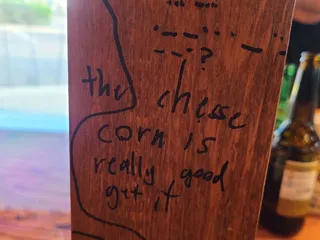 the chesse
corn is
really good
get it